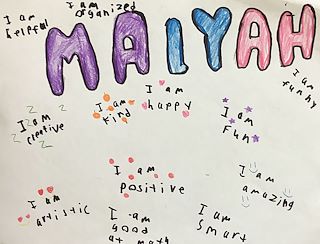 I am
helpful
I am
organized
MALYAH
I am
funny
I am
creative
I am
kind
I am
happy
I am
Fun
I am
positive
I am
amazing
I am
artistic
I am
good
at math
I am
smart